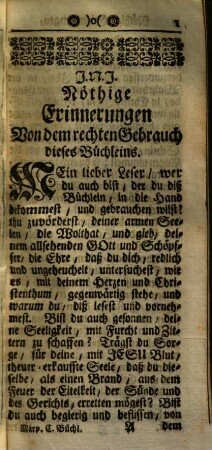 )o(
1
J.N.J.
Nöthige
Erinnerungen
Von dem rechten Gebrauch
dieses Büchleins.
MEin lieber Leser/ wer
du auch bist, der du diß
Büchlein, in die Hand
bekommest, und gebrauchen willst?
thu zuvörderst, deiner armen See-
len, die Wolthat, und gieb, deinem
allsehenden GOtt und Schöpf-
fer, die Ehre, daß du dich, redlich
und ungeheuchelt, untersuchest, wie
es, mit deinem Herzen und Chri-
stenthum, gegenwärtig stehe, und
warum du, diß lesest und vorneh-
mest. Bist du auch gesonnen, dei-
ne Seeligkeit, mit Furcht und Zit-
tern zu schaffen? Trägst du Sor-
ge, für deine, mit JESU Blut,
theuer-erkauffte Seele, daß du die-
selbe, als einen Brand, aus dem
Feuer der Eitelkeit, der Sünde und
des Gerichts, erretten mögest? Bist
du auch begierig und beflissen, von
Marp. C. Büchl. A dem